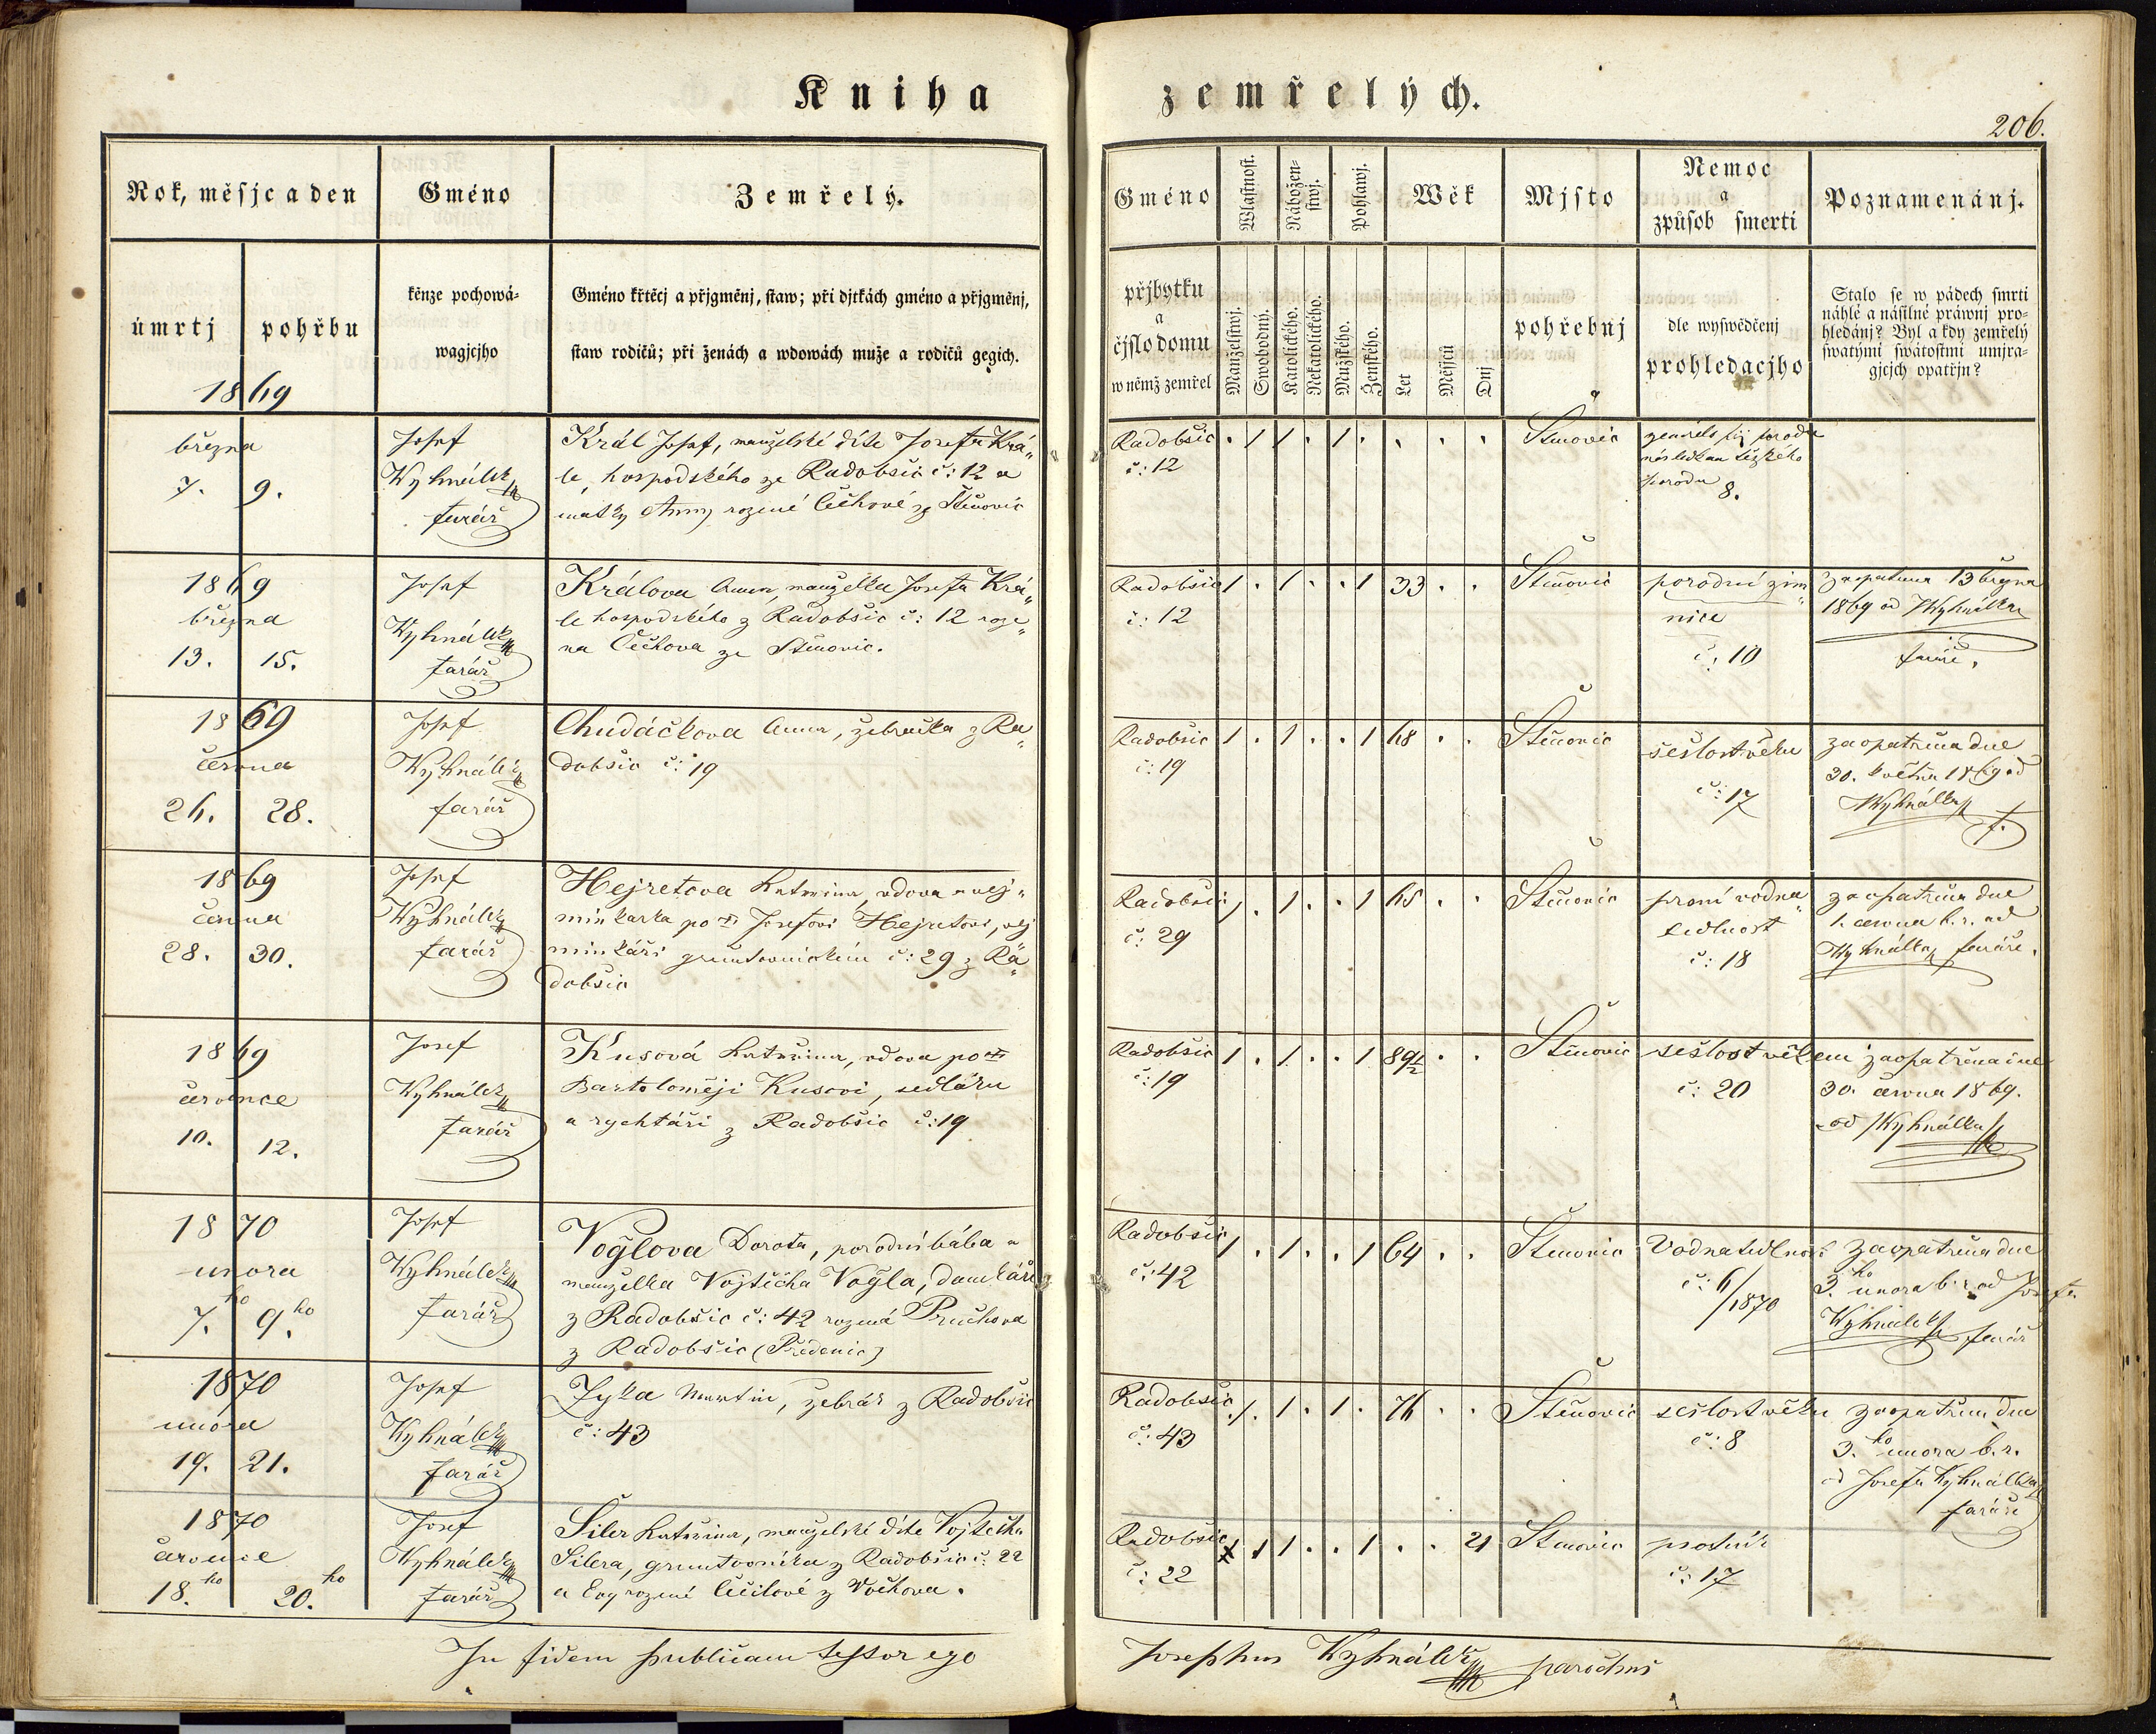 Kniha zemřelých.
206.
Rok, měsjc a den
Gméno
Zemřelý.
úmrtj
pohřbu
kěnze pochowá=
wagjcjho
Gméno křtěcj a přjgměnj, staw; při djtkách gméno a přjgměnj,
staw rodičů; při ženách a wdowách muže a rodičů gegich.
1869
Gméno
Wlastnost.
Nábožen=
stwj.
Pohlawj.
Wěk
Mjsto
Nemoc
a
způsob smerti
Poznamenánj.
přjbytku
a
čjslo domu
w němž zemřel
Manželstwj.
Swobodný.
Katolického.
Nekatolického.
Mužského.
Ženského.
Let
Měsjců
Dnj
pohřebnj
dle wyswědčenj
prohledacjho
Stalo se w pádech smrti
náhlé a násilné práwnj pro=
hledánj? Byl a kdy zemřelý
swatými swátostmi umjra=
gjcjch opatřjn?
března
7. 9.
Josef
Wyhnálek
farář
Král Josef, manželské díte Josefa Krá„
le, hospodského ze Radobšic č: 12 a
matky Anny rozené Čečkové ze Štěnovic
Radobšic
č: 12
. 1 1 . 1 . . . .
Štěnovic
následkem těžkého
porodu
8.
1869
března
13. 15.
Josef
Wyhnálek
farář
Králova Anna, manželka Josefa Krá„
le hospodského z Radobšic č: 12 roze„
na Čečkova ze Štěnovic.
Radobšic
č: 12
1 . 1 . . 1 33 . .
Štěnovic
porodní zim„
nice
č: 10
Zaopatřena 13 března
1869 od Wyhnálka
faráře,
1869
června
26. 28.
Josef
Wyhnálek
farář
Chudáčkova Anna, žebračka z Ra„
dobšic č: 19
Radobšic
č: 19
1 . 1 . . 1 68 . .
Štěnovic
sešlost věku
č: 17
zaopatřena dne
30. května 1869 od
Wyhnálka f.
1869
června
28. 30.
Josef
Wyhnálek
farář
Hejretova Kateřina, vdova a vej„
minkarka po Josefovi Hejretovi, vej
minkáři gruntovnickém č: 29 z Ra„
dobšic
Radobšic
č: 29
1 . 1 . . 1 65 . .
Štěnovic
prsní vodna„
tedlnost
č: 18
zaopatřena dne
1. června b. r. od
Wyhnálka faráře.
1869
července
10. 12.
Josef
Wyhnálek
farář
Kusová Kateřina, vdova po
Bartoloměji Kusovi, sedláku
a rychtáři z Radobšic č: 19
Radobšic
č: 19
1 . 1 . . 1 89½ . .
Štěnovic
sešlost věkem
č: 20
zaopatřena dne
30. června 1869.
od Wyhnálka
1870
unora
7.ho 9.ho
Josef
Wyhnálek
farář
Voğlova Dorota, porodní bába a
manželka Vojtěcha Voğla, domkáře
z Radobšic č: 42 rozená Pruchova
z Radobšic (Předenic)
Radobšic
č: 42
1 . 1 . . 1 64 . .
Štěnovic
Vodnatedlnost
č: 6/1870
Zaopatřena dne
3.ho unora b. r. od Josefa
Wyhnálek farář
1870
unora
19. 21.
Josef
Wyhnálek
farář
Zyka Martin, žebrák z Radobšic
č: 43
Radobšic
č: 43
. 1 . 1 . 1 . 76 . .
Štěnovic
sešlost věku
č: 8
zaopatřen dne
3.ho unora b. r.
od Josefa Wyhnálka
faráře
1870
července
18.ho 20.ho
Josef
Wyhnálek
farář
Šiler Kateřina, manželské díte Vojtěcha
Šilera, gruntovníka z Radobšic č: 22
a Evy rozené Čečilové z Vochova.
Radobšic
č: 22
1 1 . . 1 . . 21
Štěnovic
psotník
č: 17
In fidem publicam testor ego Josephus Wyhnálek parochus